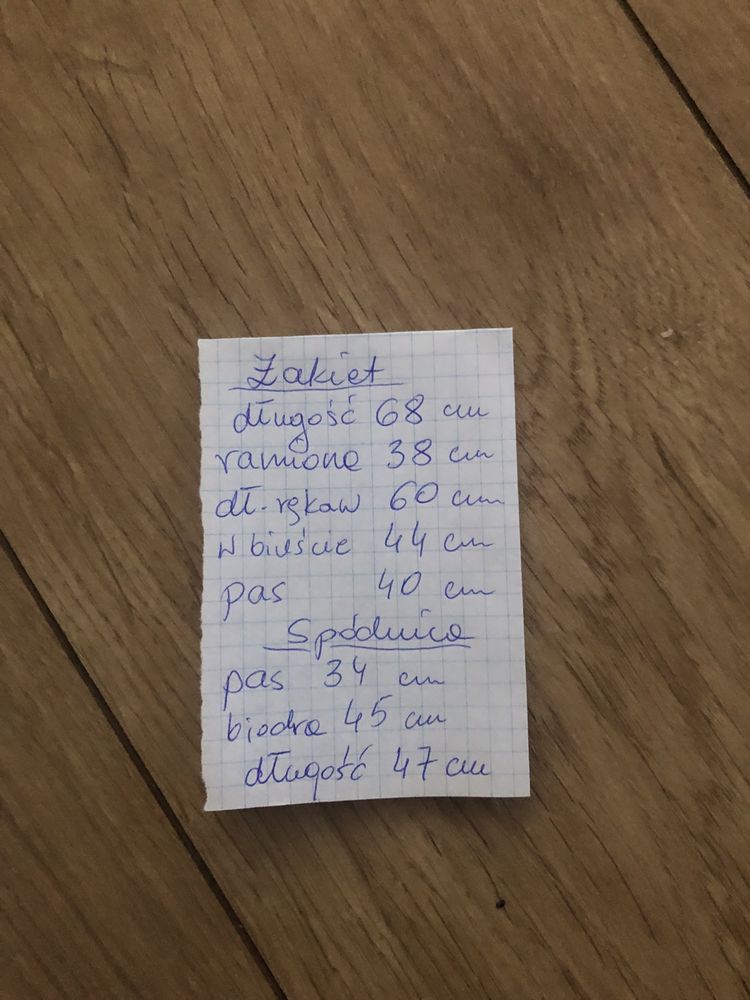 Żakiet
długość 68 cm
ramiona 38 cm
dł. rękaw 60 cm
w biuście 44 cm
pas 40 cm
Spódnica
pas 34 cm
biodra 45 cm
długość 47 cm